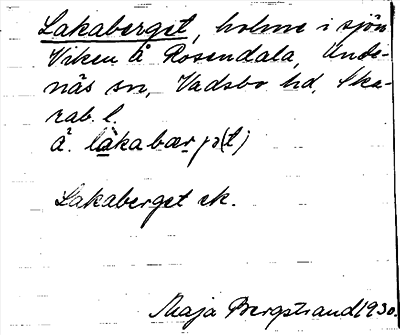 Lakaberget, holme i sjön
Viken Å Rosendala, Unde-
näs sn, Vadsbo hd, Ska-
rab. l.
å. làkabær⁠ȷ⁠ə(t)
Lakaberget ek.
Maja Bergstrand 1930.